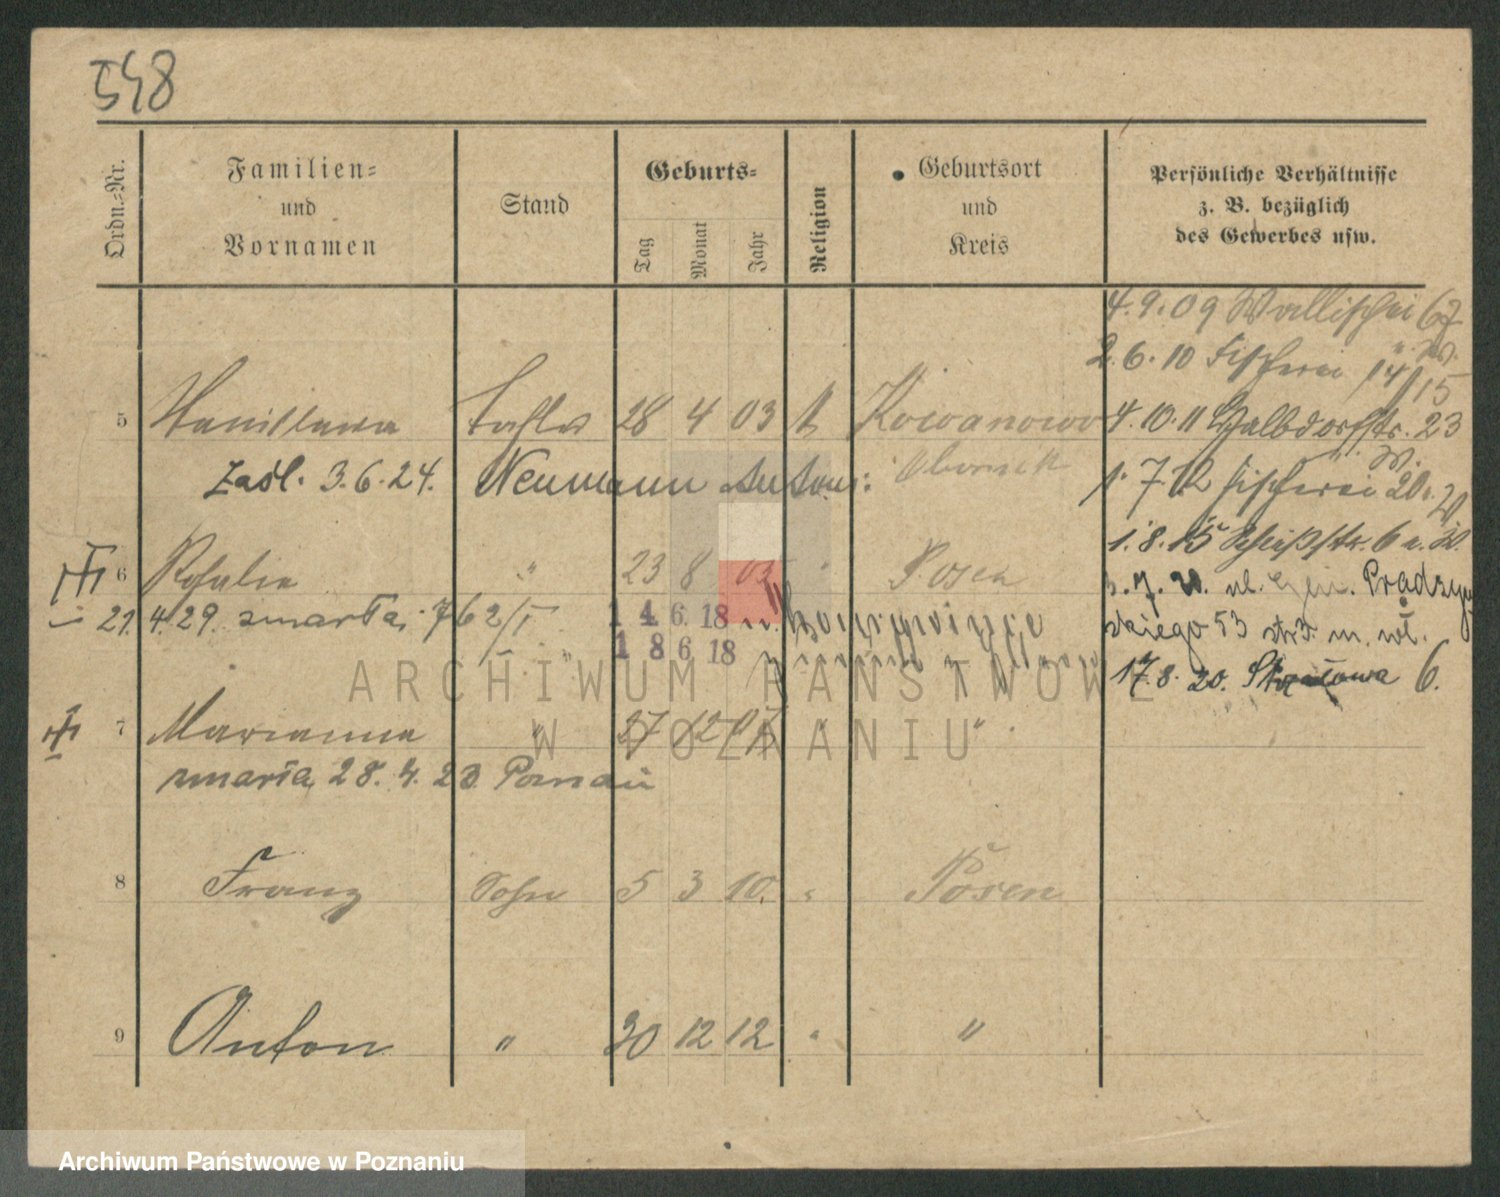 548
Ordn.-Nr.
Familien-
und
Vornamen
Stand
Geburts-
Tag
Monat
Jahr
Religion
Geburtsort
und
Kreis
Persönliche Verhältnisse
z. B. bezüglich
des Gewerbes usw.
4.9.09 Wallischei 67
2.6.10 Fischerei 14/15
5 Stanislawa Tochter 28 4 03 k Kowanowo
Obornik
4.10.11 Halbdorfstr. 23
zaśl. 3.6.24. Neumann Antoni
1.7.12 Fischerei 20
1.8.15 Schießstr. 6
6 Rosalie " 23 8 05 " Posen
3.7.20. ul. Gen. Prądzyń
skiego 53 m. wł.
21.4.29. zmarła 762/I
14 6. 18
18 6 18
17.8.20. Strzałowa 6.
7 Marianna " 27 12 07 " "
zmarła 28.4.23 Poznań
8 Franz Sohn 5 3 10. " Posen
9 Anton " 30 12 12 " "
ARCHIWUM PAŃSTWOWE
W POZNANIU
Archiwum Państwowe w Poznaniu